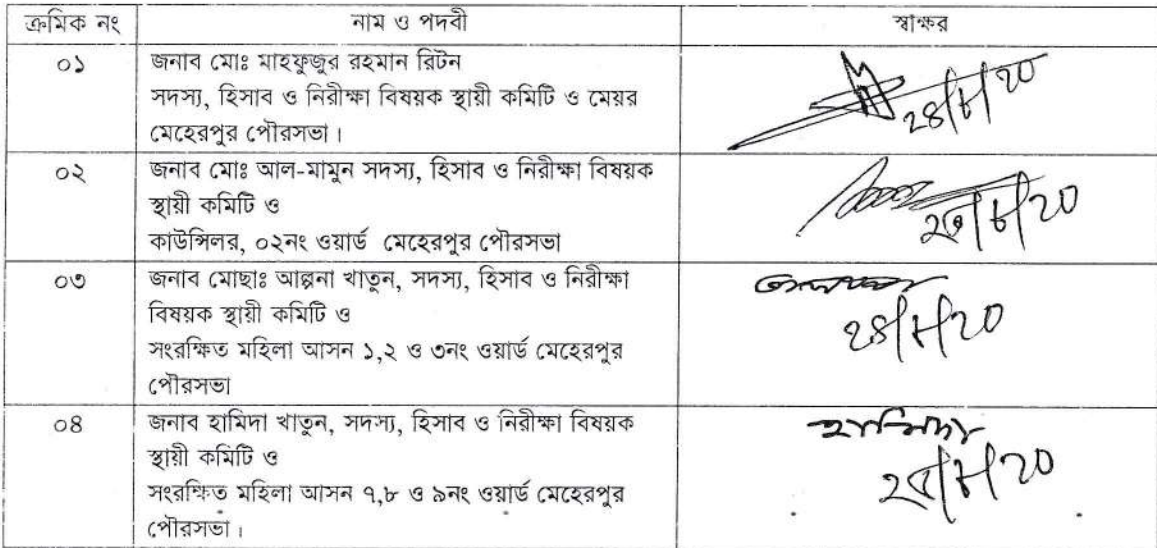 ক্রমিক নং নাম ও পদবী স্বাক্ষর
০১ জনাব মোঃ মাহফুজুর রহমান রিটন
সদস্য, হিসাব ও নিরীক্ষা বিষয়ক স্থায়ী কমিটি ও মেয়র
মেহেরপুর পৌরসভা।
০২ জনাব মোঃ আল-মামুন সদস্য, হিসাব ও নিরীক্ষা বিষয়ক
স্থায়ী কমিটি ও
কাউন্সিলর, ০২নং ওয়ার্ড মেহেরপুর পৌরসভা
০৩ জনাব মোছাঃ আল্পনা খাতুন, সদস্য, হিসাব ও নিরীক্ষা
বিষয়ক স্থায়ী কমিটি ও
সংরক্ষিত মহিলা আসন ১,২ ও ৩নং ওয়ার্ড মেহেরপুর
পৌরসভা
০৪ জনাব হামিদা খাতুন, সদস্য, হিসাব ও নিরীক্ষা বিষয়ক
স্থায়ী কমিটি ও
সংরক্ষিত মহিলা আসন ৭,৮ ও ৯নং ওয়ার্ড মেহেরপুর
পৌরসভা।
হামিদা